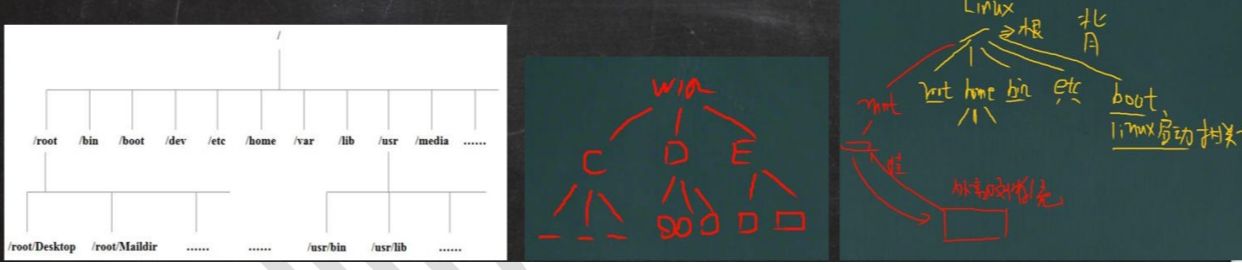 /
/root /bin /boot /dev /etc /home /var /lib /usr /media ......
/root/Desktop /root/Maildir ...... ...... /usr/bin /usr/lib ......
win
C D E
Linux
根
背
root home bin etc
boot
linux启动相关
挂